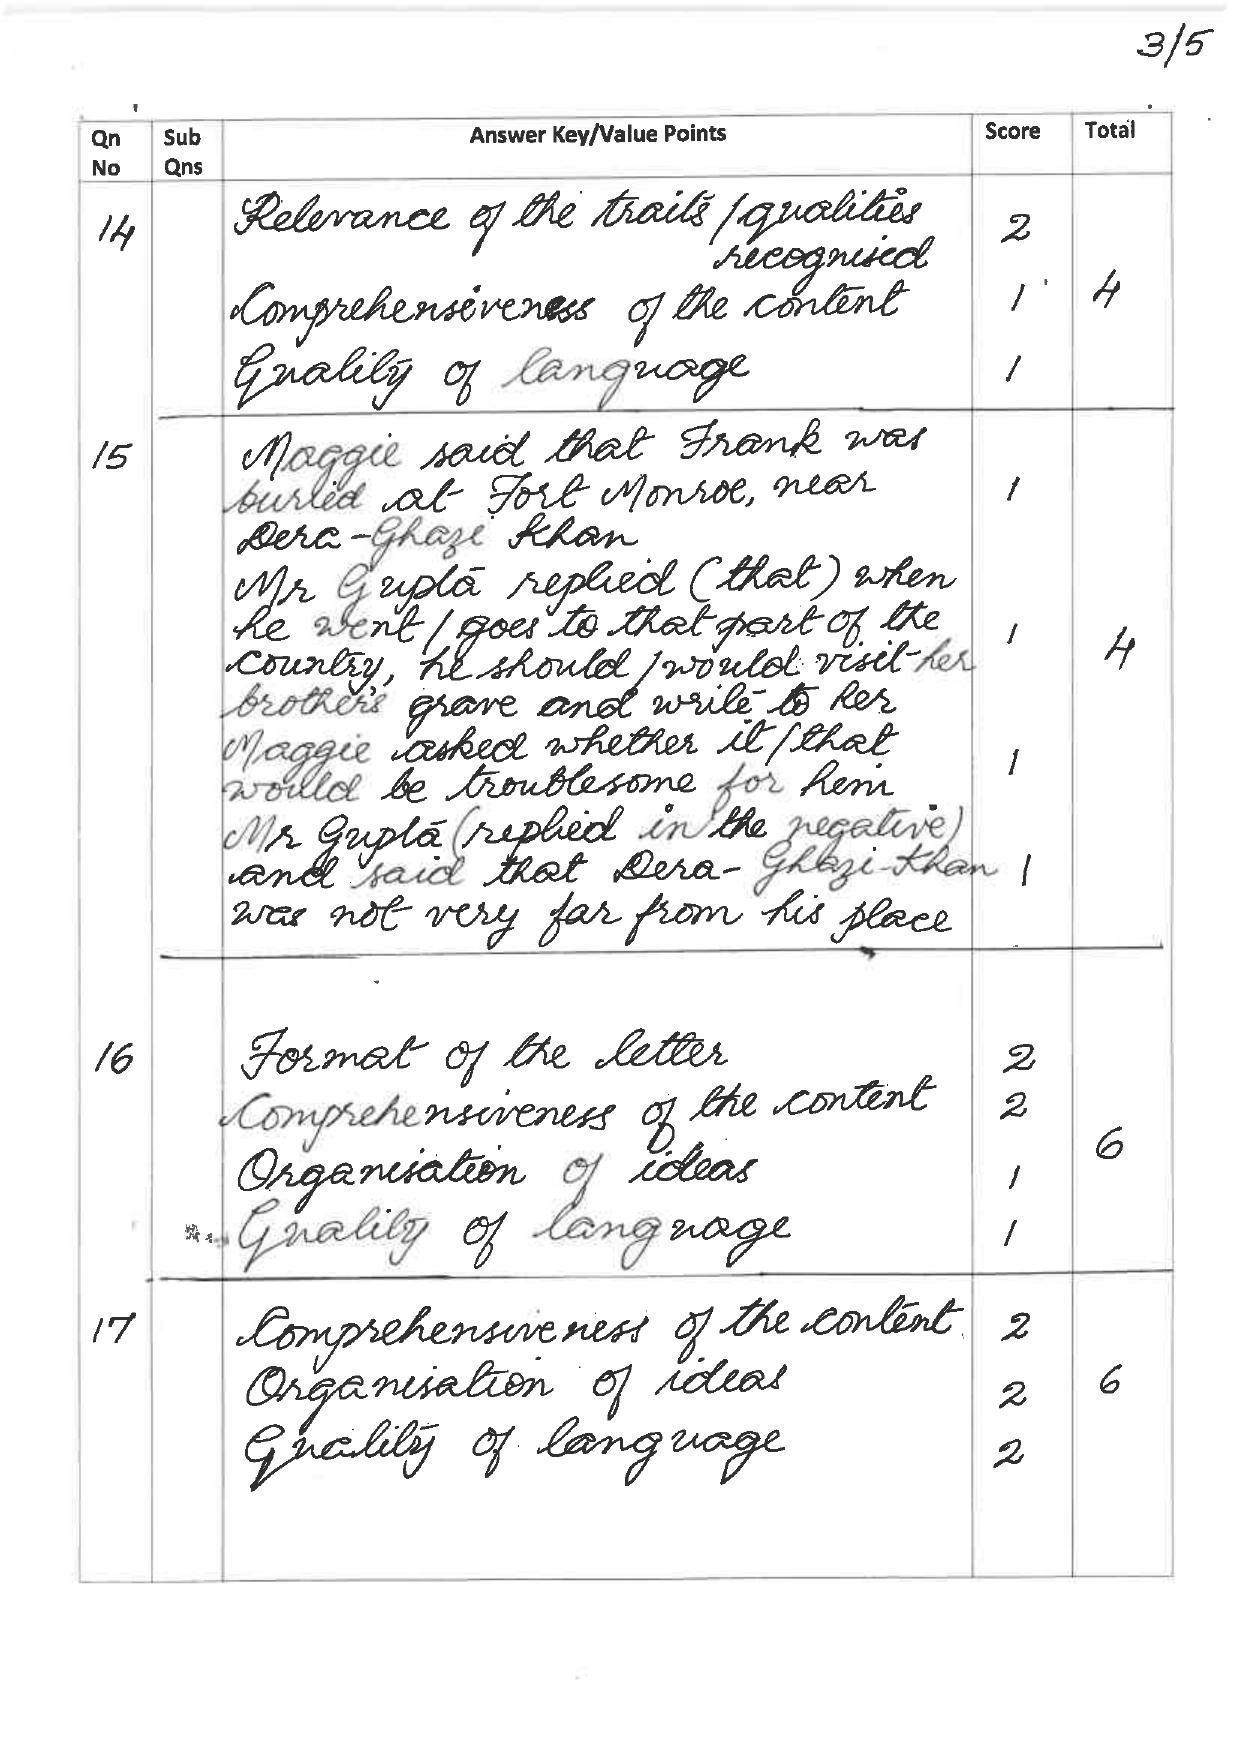 3/5
Qn No Sub Qns Answer Key/Value Points Score Total
14 Relevance of the traits/qualities 2
recognised
Comprehensiveness of the content 1 4
Quality of language 1
15 Maggie said that Frank was
buried at Fort Monroe, near 1
Dera-Ghazi Khan
Mr Gupta replied (that) when
he went/goes to that part of the 1 4
country, he should/would visit her
brother's grave and write to her
Maggie asked whether it/that 1
would be troublesome for him
Mr Gupta (replied in the negative)
and said that Dera-Ghazi-Khan 1
was not very far from his place
16 Format of the letter 2
Comprehensiveness of the content 2
6
Organisation of ideas 1
Quality of language 1
17 Comprehensiveness of the content 2
Organisation of ideas 2 6
Quality of language 2